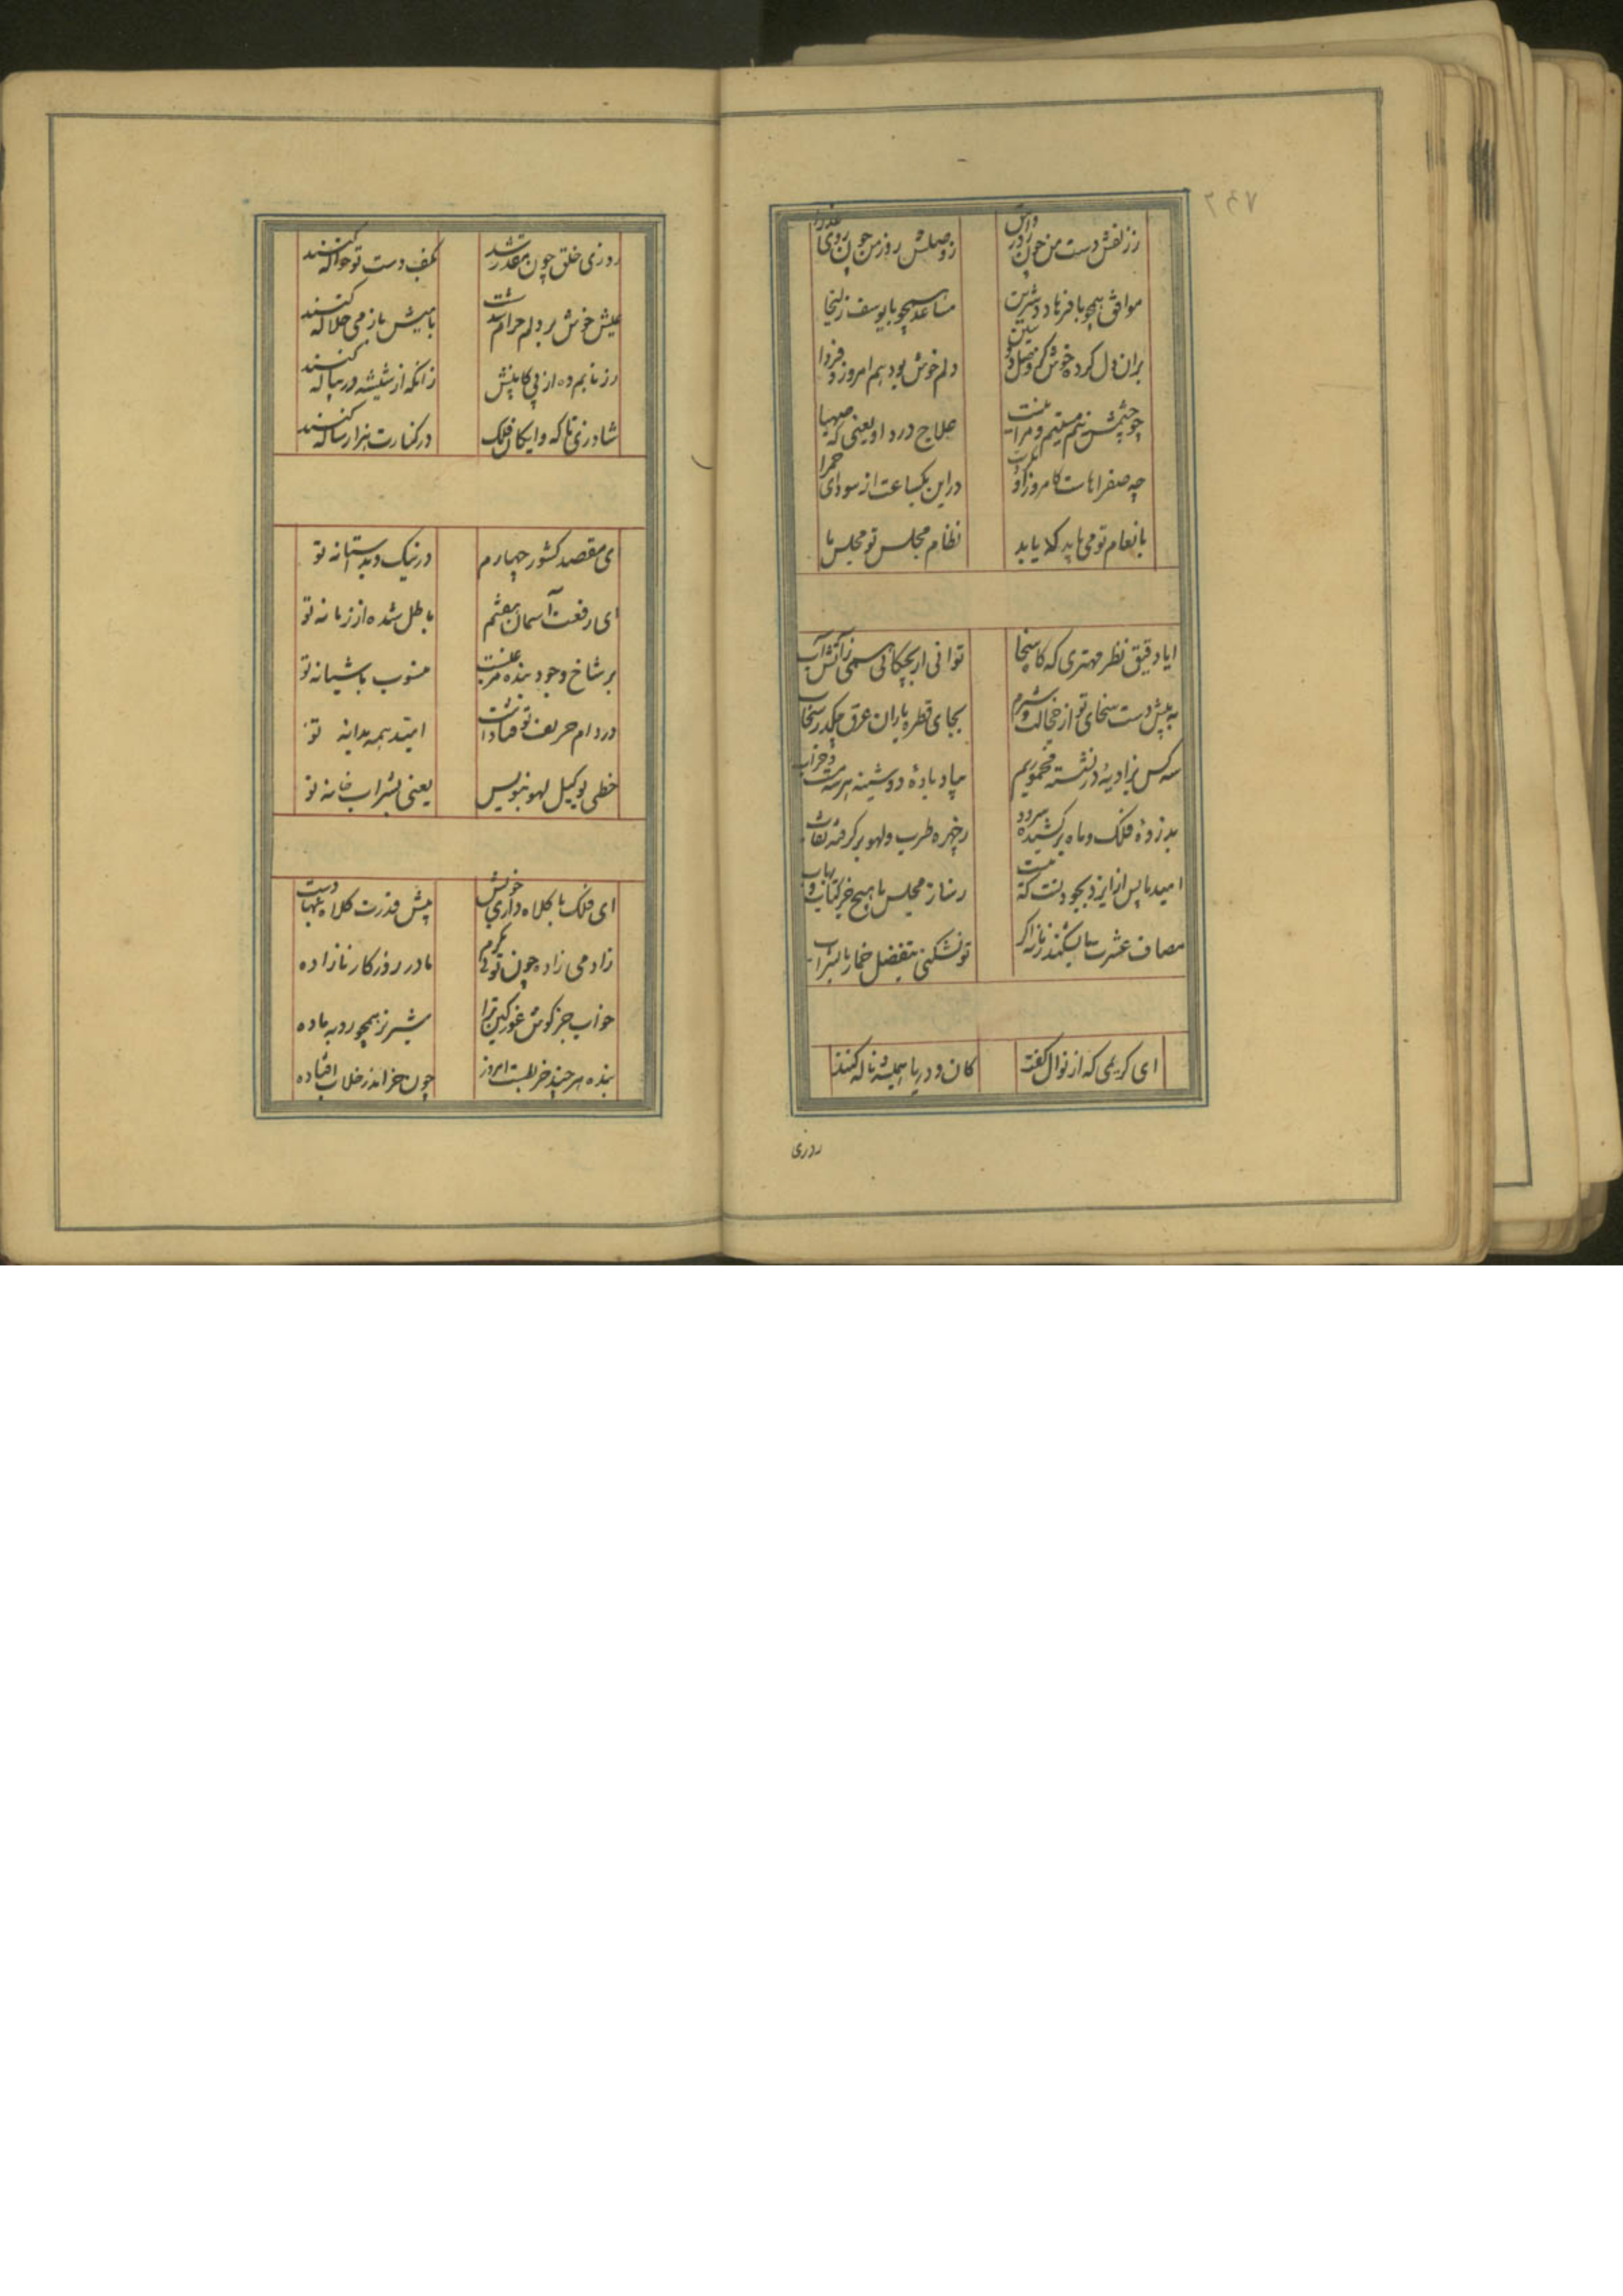 ۲۴۷
ز زلفش دست من چون
ز وصلش روز من چون روی
موافق همچو با فرهاد شیرین
مساعد همچو با یوسف زلیخا
بران دل کرده خوش کز وصل
دلم خوش بود هم امروز و فردا
چو چشمش نیم مستیم و مرا نیست
علاج درد او یعنی که صهبا
چه صفراهاست کامروز او نکردست
در این یکساعت از سودای حمرا
بانعام تو می باید که یابد
نظام مجلس تو مجلس ما
ایا دقیق نظر مهتری که گاه سخا
توانی ار بچکانی همی ز آتش آب
به پیش دست سخای تو از خجالت و شرم
بجای قطره باران عرق چکد ز سحاب
سه کس بزاویهٔ در نشسته مخموریم
بیاد بادهٔ دوشینه هر سه مست و خراب
بدزوهٔ فلک و ماه بر کشیده سرود
ز چهره طرب و لهو بر گرفته نقاب
امید ما پس از ایزد بجود تست که نیست
ز ساز مجلس ما هیچ جز کتاب و رباب
مصاف عشرت ما بشکند زمانه اگر
تو نشکنی بتفضل خمار ما بشراب
ای کریمی که از نوال کفت
کان و دریا همیشه ناله کنند
روزی
روزی خلق چون مقدر شد
بکف دست تو حواله کنند
عیش خوش بر دلم حرام شدست
بامیش باز می حلاله کنند
رز نابم ده از پی کابینش
زانکه از شیشه در پیاله کنند
شاد زی تا که دایگان فلک
در کنارت هزار ساله کنند
ای مقصد کشور چهارم
در نیک و بد آستانه تو
ای رفعت آسمان هفتم
باطل شده از زمانه تو
بر شاخ وجود بنده مرغیست
منسوب باشیانه تو
در دام حریف تو فتادست
امید همه بدانه تو
خطی بوکیل لهو بنویس
یعنی بشراب خانه تو
ای فلک با کلاه داری خویش
پیش قدرت کلاه بنهادست
زادمی زاده چون تویی بکرم
مادر روزگار نازاده
خواب خرگوش غور کین ترا
شیر نر همچو روبه ماده
بنده هر چند خر بطست امروز
چون خر اندر خلاب افتاده